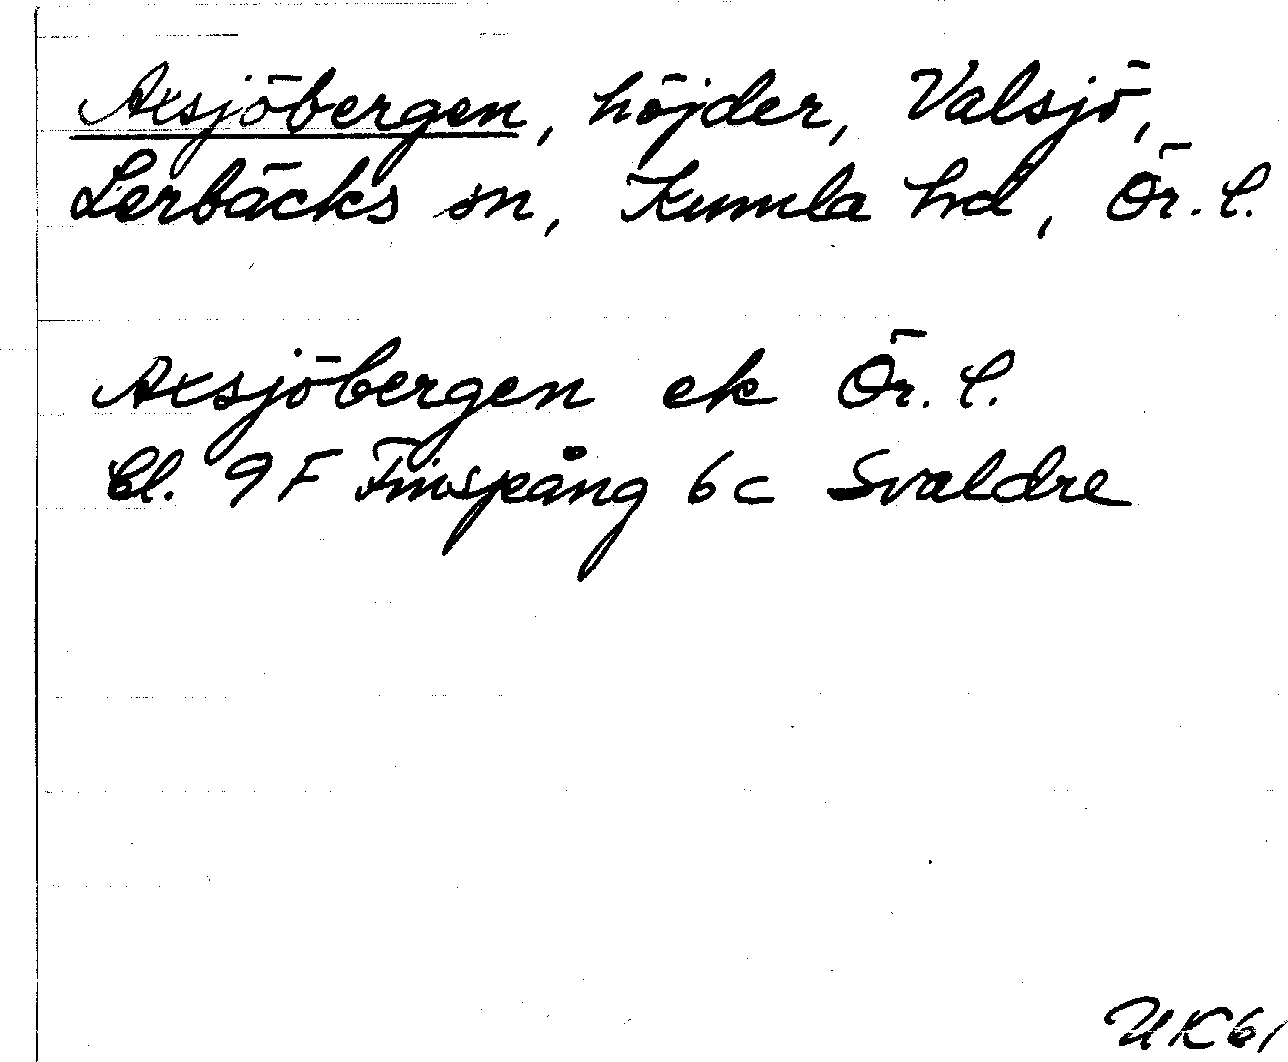 Axsjöbergen, höjder, Valsjö,
Lerbäcks sn, Kumla hd, Ör. l.
Axsjöbergen ek Ör. l.
Bl. 9F Finspång 6c Svaldre
UK61